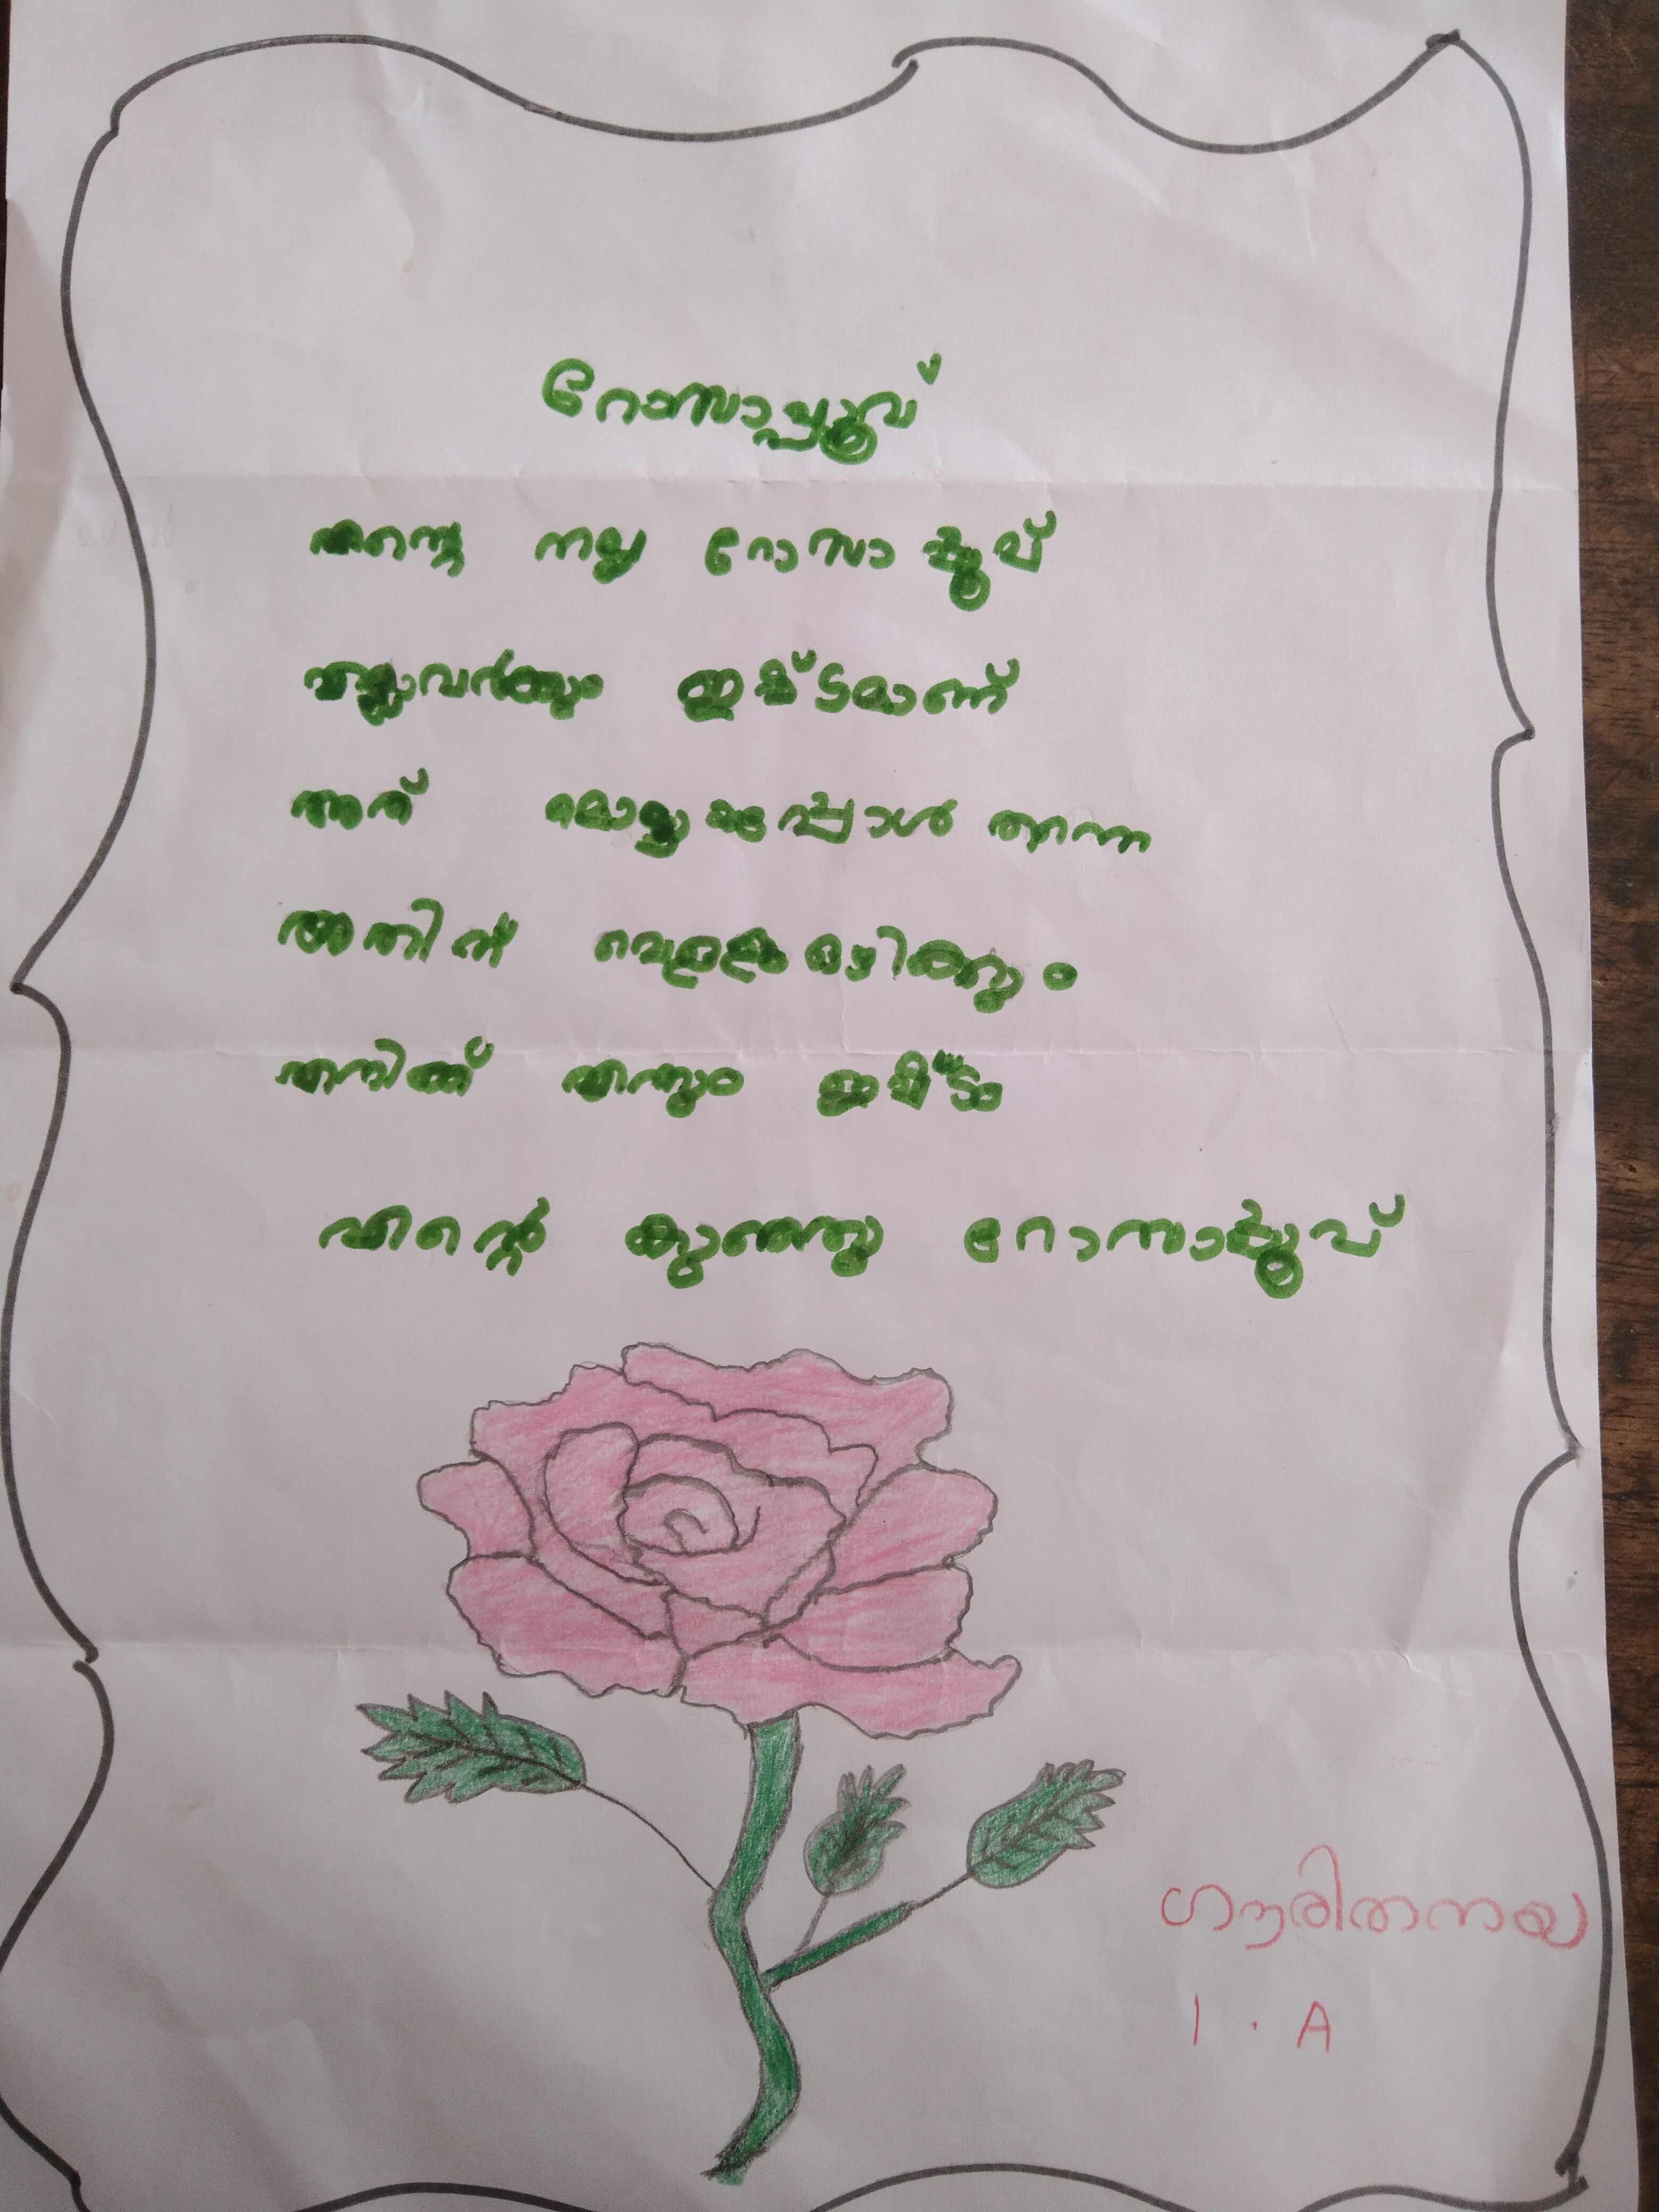 റോസാപ്പൂവ്
എന്റെ നല്ല റോസാ പ്പൂവ്
എല്ലാവർക്കും ഇഷ്ടമാണ്
അത്
അതിന്
എനിക്ക് എന്നും ഇഷ്ടം
എന്റെ കുഞ്ഞു റോസാപ്പൂവ്
ഗൗരിതനയ
1 . A